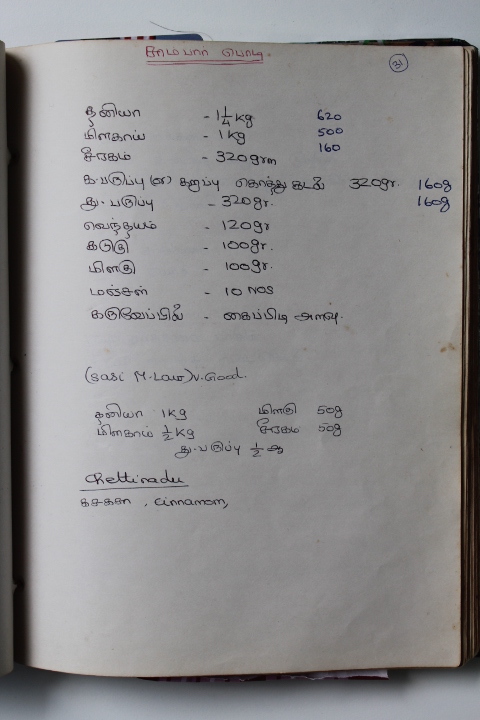 சாம்பார் பொடி.
31
தனியா - 1 1/4 kg 620
மிளகாய் - 1 kg 500
சீரகம் - 320 grm 160
க.பருப்பு (or) கறுப்பு கொத்து கடலை 320gr. 160g
து. பருப்பு - 320gr. 160g
வெந்தயம் - 120gr
கடுகு - 100gr.
மிளகு - 100gr.
மஞ்சள் - 10 NOS
கருவேப்பிலை - கைப்பிடி அளவு.
(Sasi M.Law) V.Good.
தனியா 1 Kg மிளகு 50g
மிளகாய் 1/2 Kg சீரகம் 50g
து. பருப்பு 1/2
Chettinadu
கசகசா , Cinnamom,